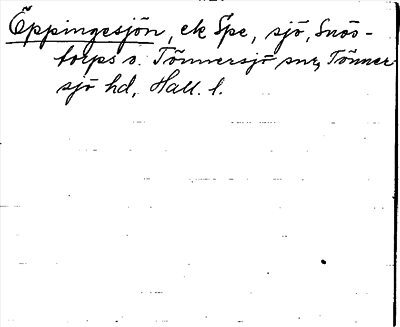 Eppingesjön, ek Spe, sjö, Snös-
torps o. Tönnersjö snr, Tönner
sjö hd, Hall. l.